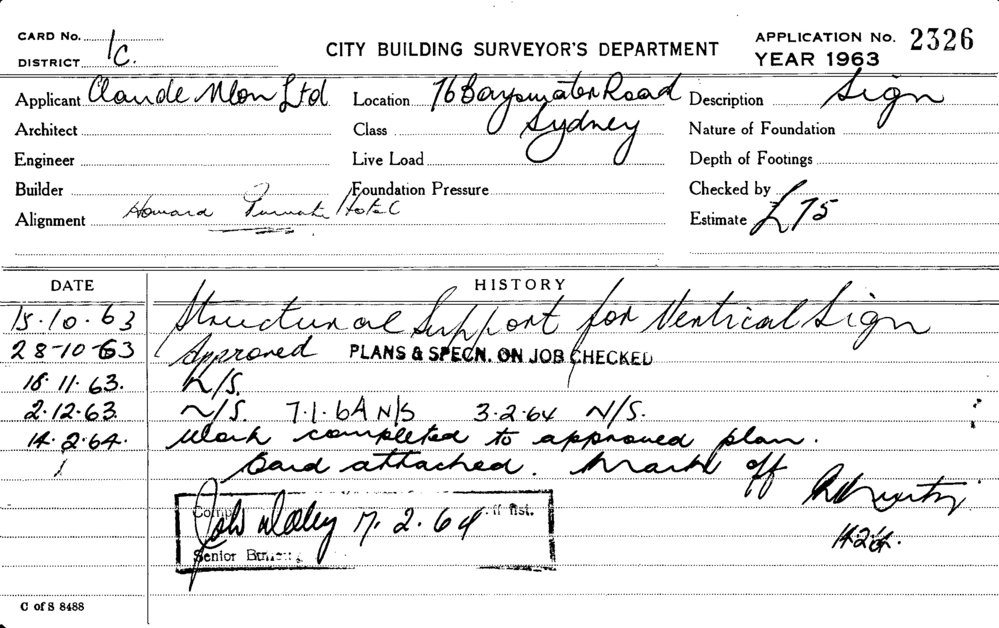 CARD No. 1C.
DISTRICT
CITY BUILDING SURVEYOR'S DEPARTMENT
APPLICATION No. 2326
YEAR 1963
Applicant Claude Neon Ltd Location 76 Bayswater Road Description Sign
Architect Class Sydney Nature of Foundation
Engineer Live Load Depth of Footings
Builder Foundation Pressure Checked by
Alignment Howard Private Hotel Estimate £75
DATE HISTORY
15.10.63 Structural Support for Vertical Sign
28-10-63 Approved PLANS & SPECN. ON JOB CHECKED
18.11.63. N/S.
2.12.63. N/S. 7.1.64 N/S 3.2.64 N/S.
14.2.64. Work completed to approved plan.
Card attached. Mark off
14.2.64.
John Daley 17.2.64
Senior
C of S 8488